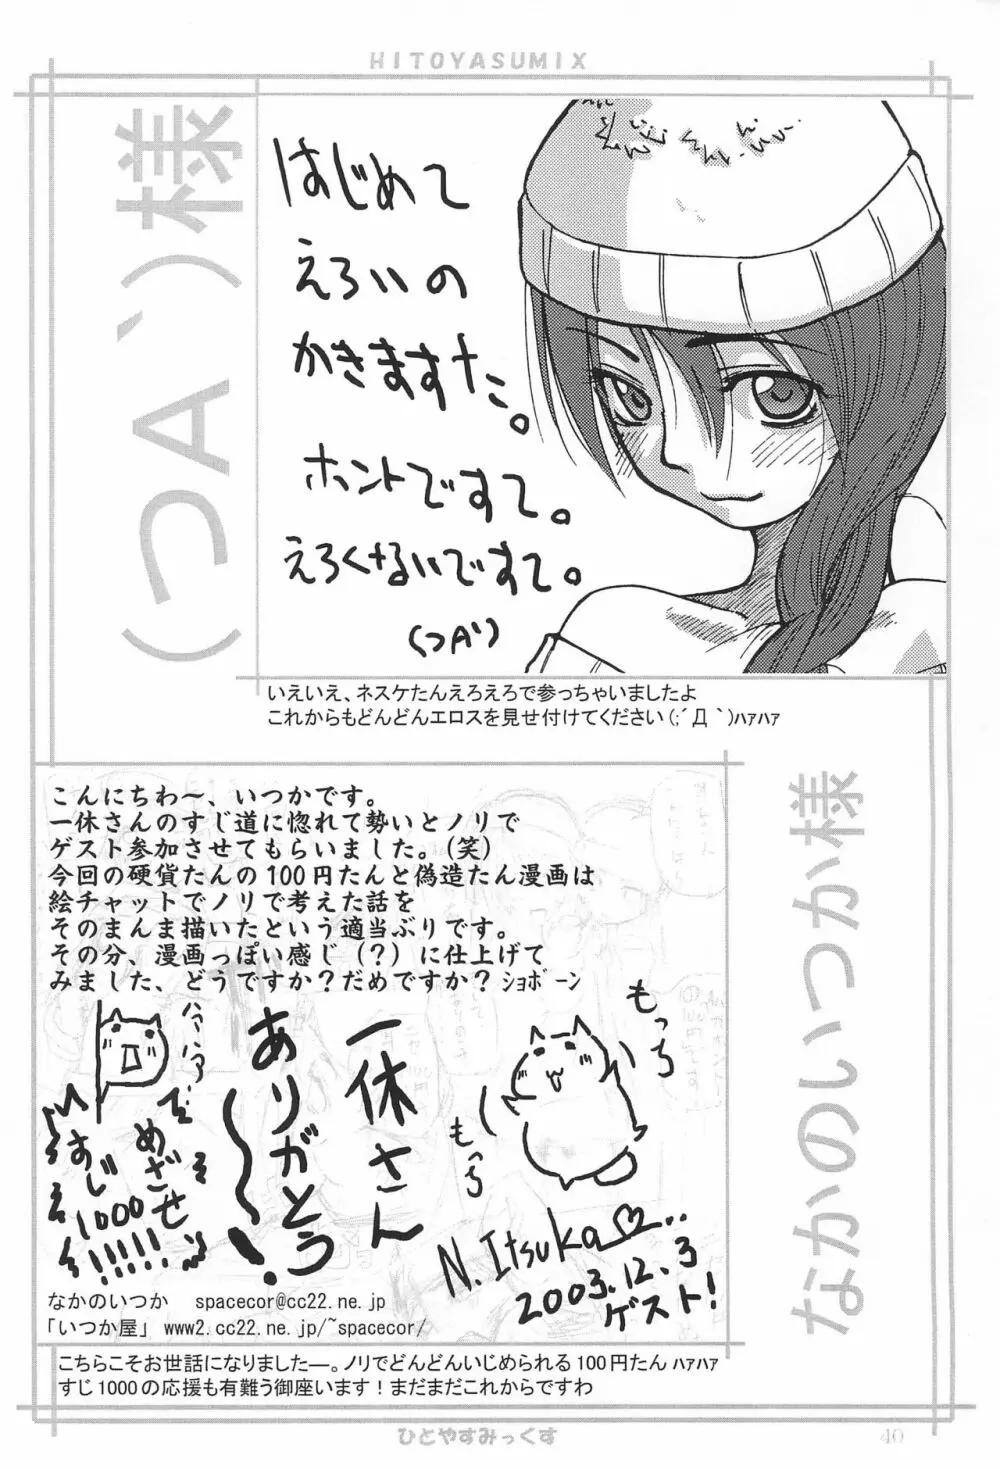 HITOYASUMIX
(つA`)様
はじめて
えろいの
かきますた。
ホントですて。
えろくないですて。
(つA`)
いえいえ、ネスケたんえろえろで参っちゃいましたよ
これからもどんどんエロスを見せ付けてください(;´Д`)ﾊｧﾊｧ
なかのいつか様
こんにちわ～、いつかです。
一休さんのすじ道に惚れて勢いとノリで
ゲスト参加させてもらいました。(笑)
今回の硬貨たんの100円たんと偽造たん漫画は
絵チャットでノリで考えた話を
そのまんま描いたという適当ぶりです。
その分、漫画っぽい感じ（？）に仕上げて
みました、どうですか？だめですか？ｼｮﾎﾞｰﾝ
もっち
もっち
一休さん
ありがとう
～～！
ハァハァ
めざせ
すじ
1000
!!!!!!
N.Itsuka♡..
2003.12.3
ゲスト!
なかのいつか spacecor@cc22.ne.jp
「いつか屋」 www2.cc22.ne.jp/~spacecor/
こちらこそお世話になりました―。ノリでどんどんいじめられる100円たん ﾊｧﾊｧ
すじ1000の応援も有難う御座います！まだまだこれからですわ
ひとやすみっくす
40